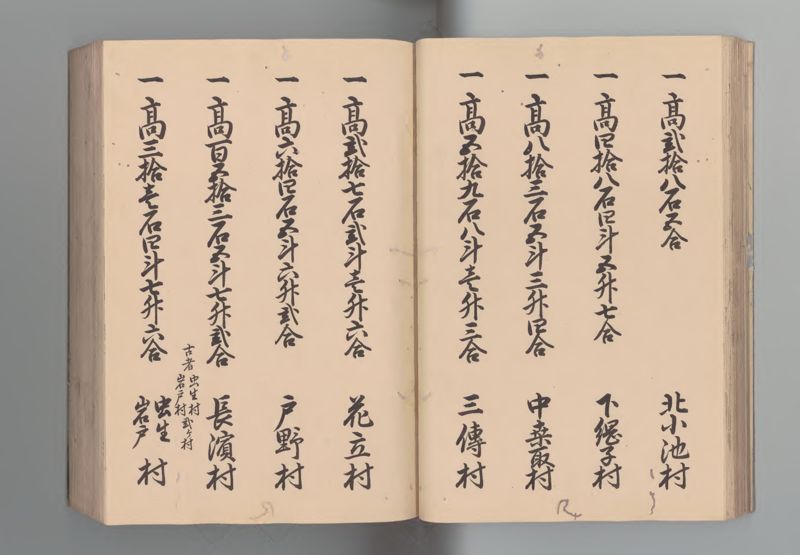 一 高弐拾八石五合 北小池村
一 高四拾八石四斗五升七合 下綱子村
一 高八拾三石五斗三升四合 中桑取村
一 高五拾九石八斗壱升三合 三傳村
一 高弐拾七石弐斗壱升六合 花立村
一 高六拾四石五斗六升弐合 戸野村
一 高百五拾三石五斗七升弐合 長濱村
古者 虫生村 岩戸村 弐ヶ村
一 高三拾壱石四斗七升六合 虫生 岩戸 村